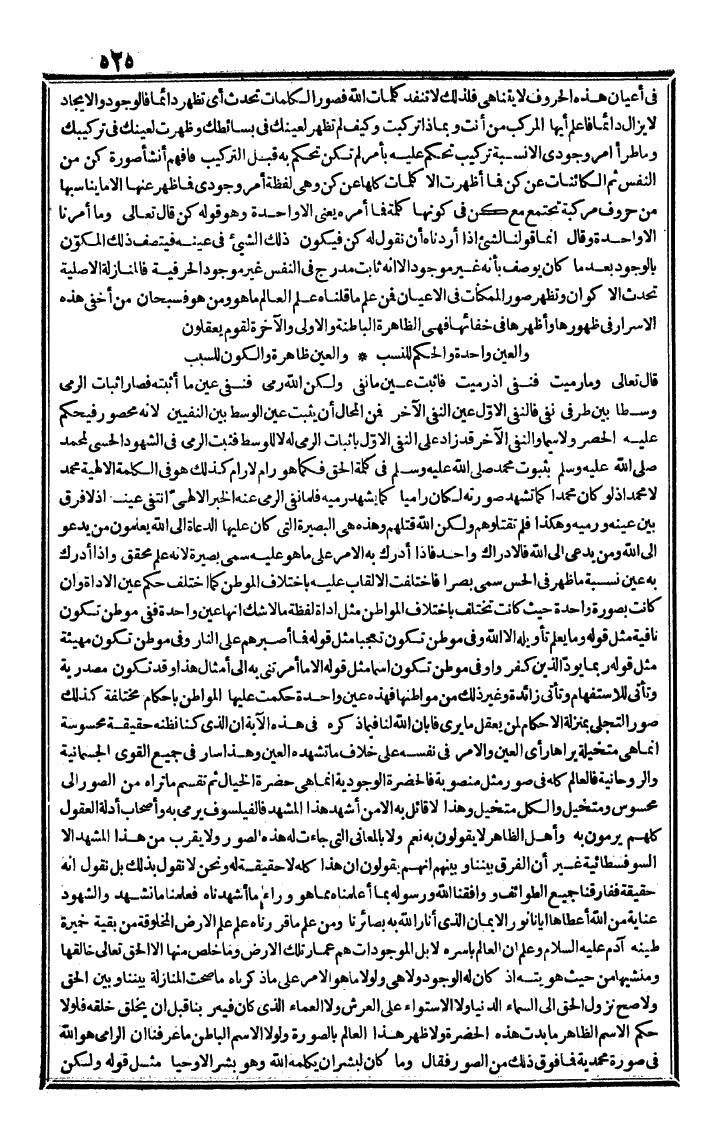 ٥٢٥
فى أعيان هذه الحروف لا يتناهى فلذلك لا تنفد كلمات الله فصور الكلمات تحدث أى تظهر دائما فالوجود والايجاد
لا يزال دائما فاعلم أيها المركب من أنت وبماذا تركبت وكيف لم تظهر لعينك فى بسائطك وظهرت لعينك فى تركيبك
وما طرأ أمر وجودى الا نسبة تركيب تحكم عليه بأمر لم تكن تحكم به قبل التركيب فافهم أنشأ صورة كن من
النفس ثم الكائنات عن كن فما أظهرت الا كلمات كلها عن كن وهى لفظة أمر وجودى فما ظهر عنها الا ما يناسبها
من حروف مركبة تجتمع مع كن فى كونها كلمة فما أمره يعنى الا واحدة وهو قوله كن قال تعالى وما أمرنا
الا واحدة وقال انما قولنا لشئ اذا أردناه أن نقول له كن فيكون ذلك الشئ فى عينه فيتصف ذلك المكوّن
بالوجود بعد ما كان يوصف بأنه غير موجود الا انه ثابت مدرج فى النفس غير موجود الحرفية فالمنازلة الاصلية
تحدث الاكوان وتظهر صور الممكنات فى الاعيان فمن علم ما قلناه علم العالم ما هو ومن هو فسبحان من أخفى هذه
الاسرار فى ظهورها وأظهرها فى خفائها فهى الظاهرة الباطنة والاولى والآخرة لقوم يعقلون
والعين واحدة والحكم للنسب * والعين ظاهرة والكون للسبب
قال تعالى وما رميت فنفى اذ رميت فاثبت عين ما نفى ولكن الله رمى فنفى عين ما أثبته فصار اثبات الرمى
وسطا بين طرفى نفى فالنفى الاوّل عين النفى الآخر فمن المحال أن يثبت عين الوسط بين النفيين لانه محصور فيحكم
عليه الحصر ولا سيما والنفى الآخر قد زاد على النفى الاوّل باثبات الرمى له لا للوسط فثبت الرمى فى الشهود الحسى لمحمد
صلى الله عليه وسلم بثبوت محمد صلى الله عليه وسلم فى كلمة الحق فكما هو رام لا رام كذلك هو فى الكلمة الالهية محمد
لا محمد اذ لو كان محمدا كما تشهد صورته لكان راميا كما يشهد رميه فلما نفى الرمى عنه الخبر الالهىّ انتفى عينه اذ لا فرق
بين عينه ورميه وهكذا فلم تقتلوهم ولكن الله قتلهم وهذه هى البصيرة التى كان عليها الدعاة الى الله يعلمون من يدعو
الى الله ومن يدعى الى الله فالادراك واحد فاذا أدرك به الامر على ما هو عليه سمى بصيرة لانه علم محقق واذا أدرك
به عين نسبة ما ظهر فى الحس سمى بصرا فاختلفت الالقاب عليه باختلاف الموطن كما اختلف حكم عين الاداة وان
كانت بصورة واحدة حيث كانت تختلف باختلاف المواطن مثل اداة لفظة ما لا شك انها عين واحدة ففى موطن تكون
نافية مثل قوله وما يعلم تأويله الا الله وفى موطن تكون تعجبا مثل قوله فما أصبرهم على النار وفى موطن تكون مهيئة
مثل قوله ربما يودّ الذين كفروا وفى موطن تكون اسما مثل قوله الا ما أمرتنى به الى أمثال هذا وقد تكون مصدرية
وتأتى للاستفهام وتأتى زائدة وغير ذلك من مواطنها فهذه عين واحدة حكمت عليها المواطن باحكام مختلفة كذلك
صور التجلى بمنزلة الاحكام لمن يعقل ما يرى فابان الله لنا فيما ذكره فى هذه الآية ان الذى كنا نظنه حقيقة محسوسة
انما هى متخيلة يراها رأى العين والامر فى نفسه على خلاف ما تشهده العين وهذا سار فى جميع القوى الجسمانية
والروحانية فالعالم كله فى صور مثل منصوبة فالحضرة الوجودية انما هى حضرة الخيال ثم تقسم ما تراه من الصور الى
محسوس ومتخيل والكل متخيل وهذا لا قائل به الا من أشهد هذا المشهد فالفيلسوف يرمى به وأصحاب أدلة العقول
كلهم يرمون به وأهل الظاهر لا يقولون به نعم ولا بالمعانى التى جاءت له هذه الصور ولا يقرب من هذا المشهد الا
السوفسطائية غير أن الفرق بيننا وبينهم انهم يقولون ان هذا كله لا حقيقة له ونحن لا نقول بذلك بل نقول انه
حقيقة ففارقنا جميع الطوائف ووافقنا الله ورسوله بما أعلمناه مما هو وراء ما أشهدناه فعلمنا ما نشهد والشهود
عناية من الله أعطاها ايانا نور الايمان الذى أنار الله به بصائرنا ومن علم ما قررناه علم علم الارض المخلوقة من بقية خميرة
طينة آدم عليه السلام وعلم ان العالم باسره لا بل الموجودات هم عمار تلك الارض وما خلص منها الا الحق تعالى خالقها
ومنشيها من حيث هويته اذ كان له الوجود ولا هى ولولا ما هو الامر على ما ذكرناه ما صحت المنازلة بيننا وبين الحق
ولا صح نزول الحق الى السماء الدنيا ولا الاستواء على العرش ولا العماء الذى كان فيه ربنا قبل ان يخلق خلقه فلولا
حكم الاسم الظاهر ما بدت هذه الحضرة ولا ظهر هذا العالم بالصورة ولولا الاسم الباطن ما عرفنا ان الرامى هو الله
فى صورة محمدية فما فوق ذلك من الصور فقال وما كان لبشر ان يكلمه الله وهو بشر الا وحيا مثل قوله ولكن